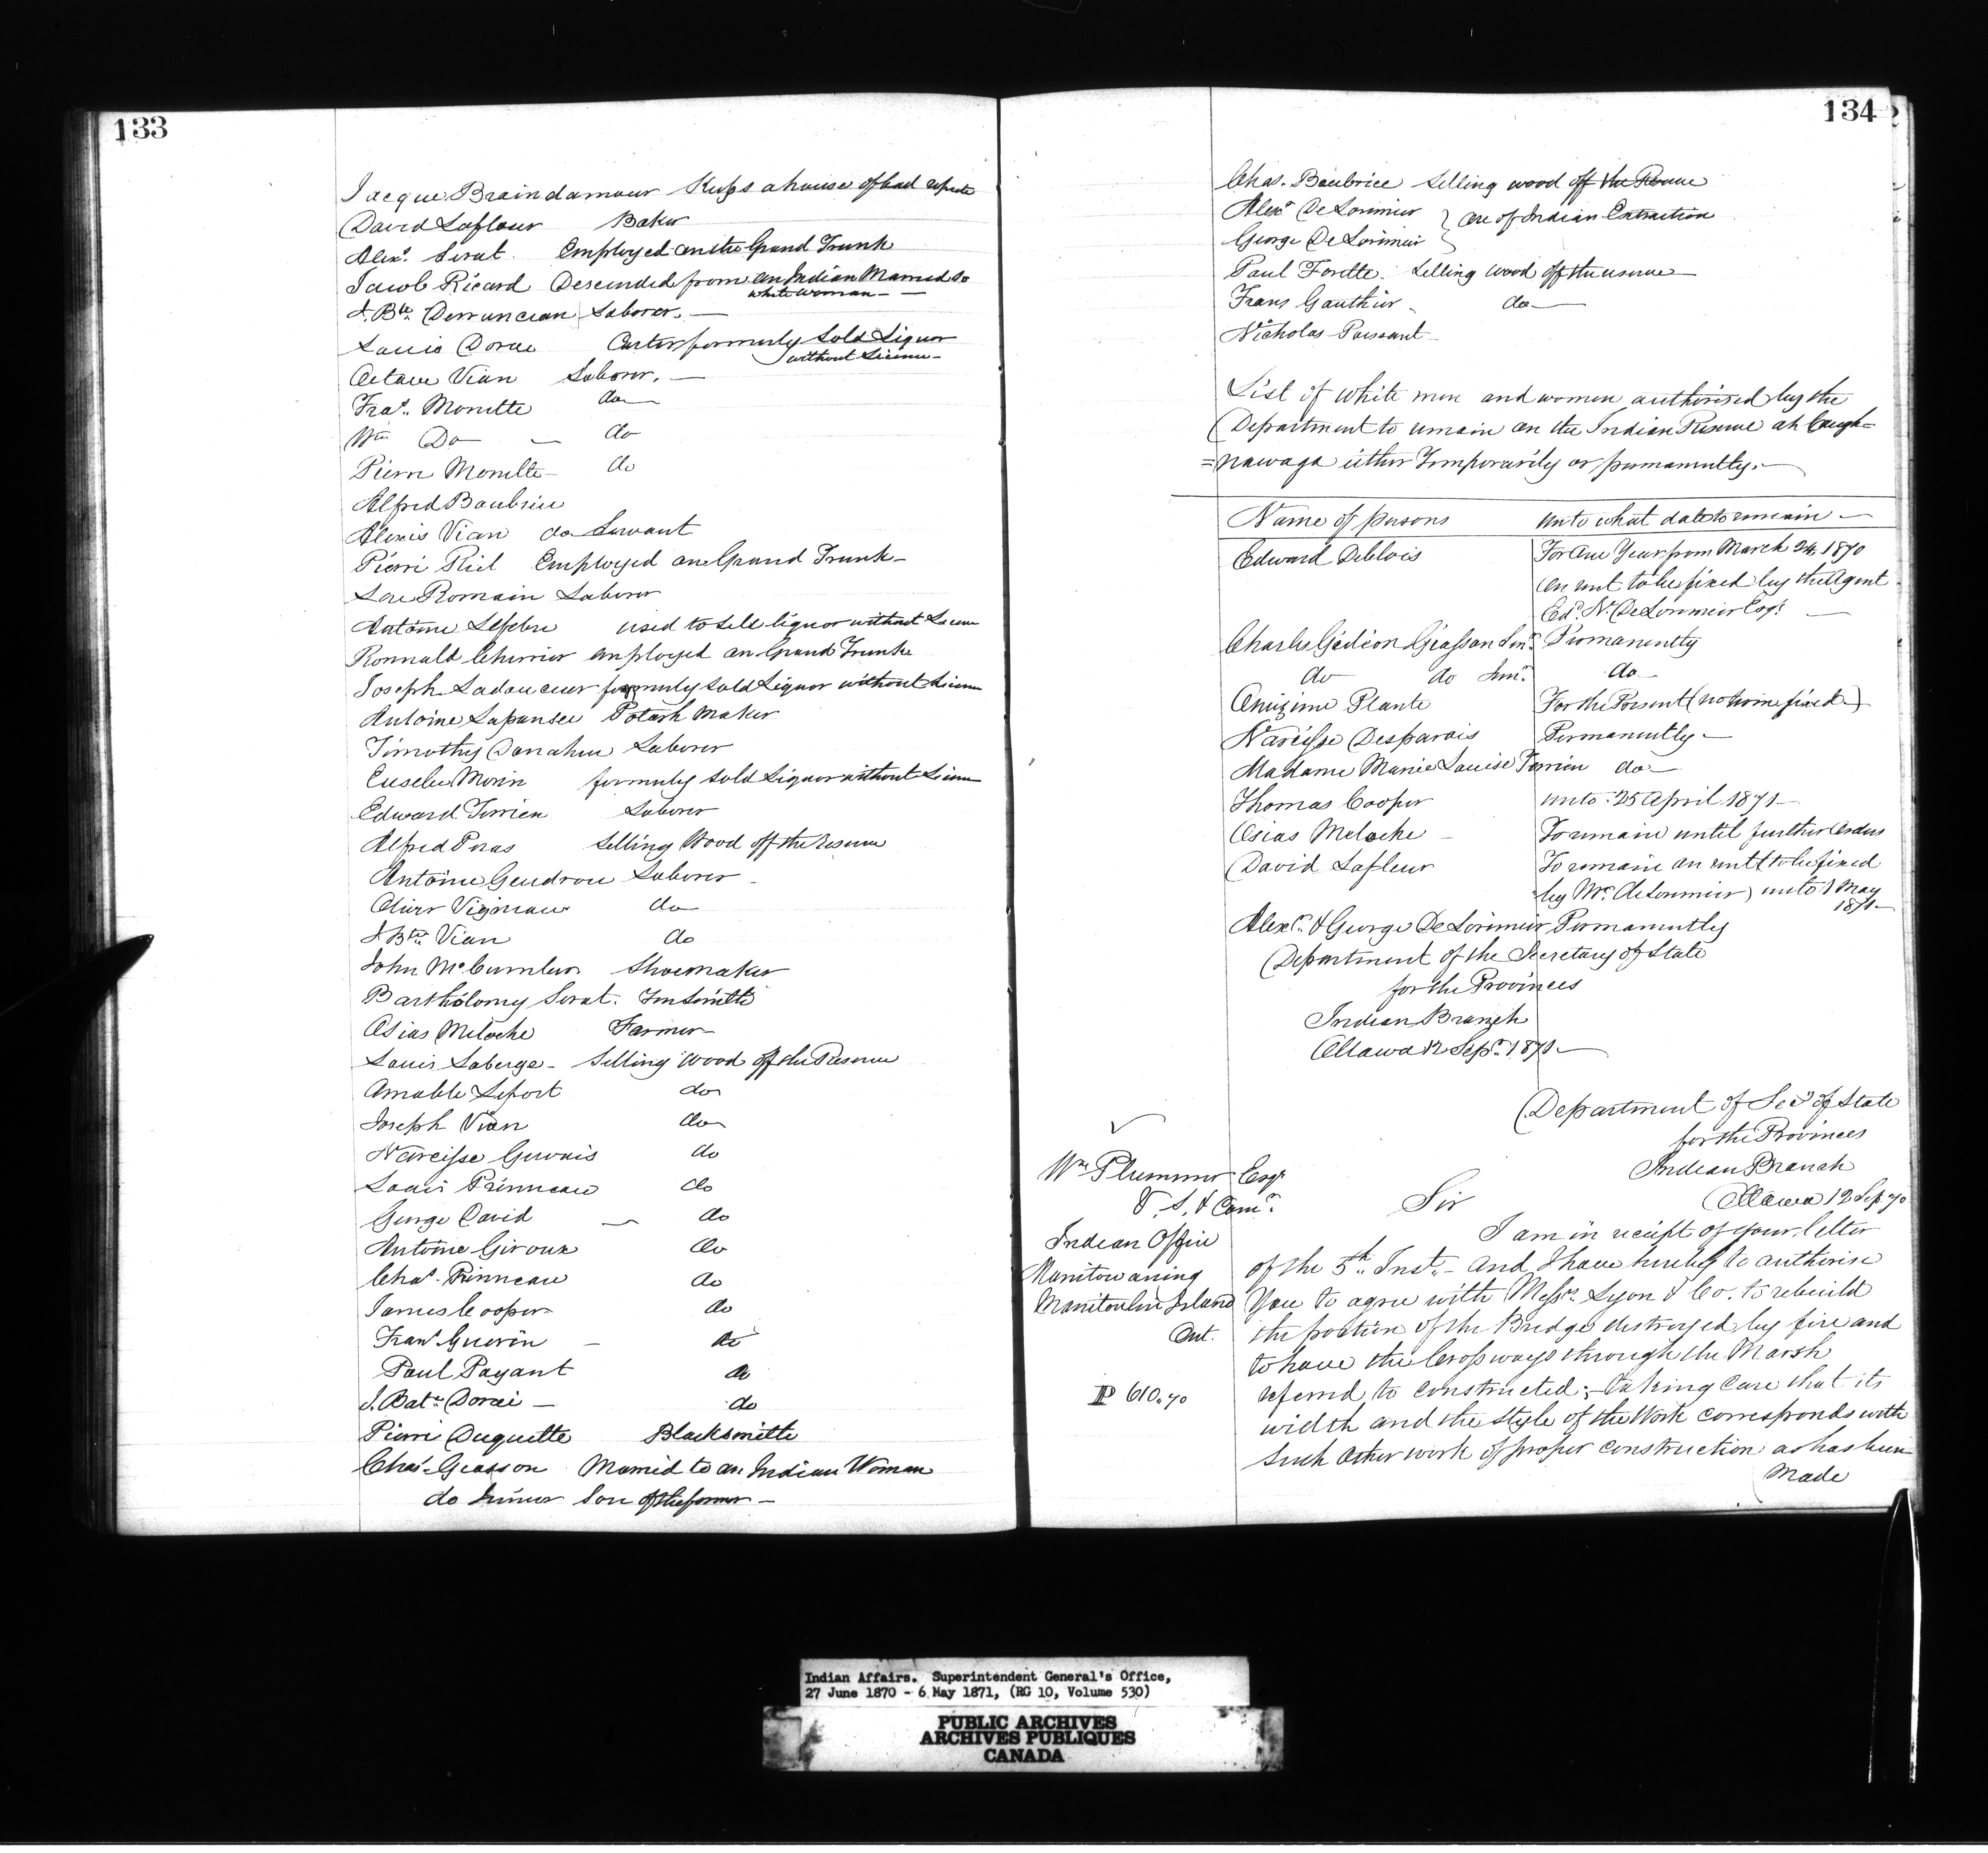 133
Jacque Braindamour Keeps a house of bad repute
David Lafleur Baker
Alexr. Serat. Employed on the Grand Trunk
Jacob Ricard Descended from an Indian Married to
white woman —
J. Bte. Laborer. —
Louis Dorae Carter formerly Sold Liquor
without License —
Octave Vian Laborer. —
Fras. Monette do —
Wm Do — do
Pierre Monette — do
Alfred Baubrice
Alexis Vian do Servant
Pierri Riel Employed on Grand Trunk —
Romain Laborer
Antoine Lefebre used to sell liquor without License
Ronnald Cherrier employed on Grand Trunk
Joseph Ladouceur formerly sold Liquor without License
Antoine Lapensee Potash Maker
Timothy Donahue Laborer
Eusebe Morin formerly sold Liquor without License
Edward Terrien Laborer
Alfred Poras Selling Wood off the reserve
Antoine Gendron Laborer —
Oliver Vigneau do —
J Bte. Vian do
John McCumber Shoemaker
Bartholomy Serat. Tinsmith
Osias Meloche Farmer —
Louis Laberge — Selling Wood off the Reserve
Amable Lefort do
Joseph Vian do
Narcisse Gervais do
Louis Prinneau do
George David — do
Antoine Giroux do
Chas. Prinneau do
James Cooper do
Frans. Guerin — do
Paul Payant do
J. Bate. Dorai — do
Pierri Duquette Blacksmith
Chas. Geasson Married to an Indian Woman
do Junior Son of the former —
134
Chas. Baubrice Selling wood off the Reserve
Alexr. De Lorimier } are of Indian Extraction
George De Lorimier
Paul Forette. Selling wood off the reserve —
Frans Gauthier — do —
Nicholas Poissant —
List of white men and women authorised by the
Department to remain on the Indian Reserve at Caugh=
=nawaga either Temporarily or permanently. —
Name of persons unto what date to remain —
Edward Deblois For One Year from March 24, 1870
on rent to be fixed by the Agent
Ed. N. DeLorimier Esqr. —
Charles Gédéon Giasson Senr. Permanently
do do Junr. do —
Onizime Plante For the Present (no time fixed —)
Narcisse Desparois Permanently —
Madame Marie Louise Terrien do —
Thomas Cooper unto 25 April 1871 —
Osias Meloche — To remain until further Orders
David Lafleur To remain on rent to be fixed
by Mr. deLorimier, unto 1 May
1871 —
Alexr. & George De Lorimier Permanently
Department of the Secretary of State
for the Provinces
Indian Branch
Ottawa 12 Sepr. 1870 —
Department of Secy of State
for the Provinces
Indian Branch
Ottawa 12 Sep 70
Wm Plummer Esqr
V. S. & Comr.
Indian Office
Manitowaning
Manitoulin Island
Ont.
P 610.70
Sir
I am in receipt of your letter
of the 5th Inst. — and I have hereby to authorise
You to agree with Messrs. Lyon & Co. to rebuild
the portion of the Bridge destroyed by fire and
to have the Crossways through the Marsh
referred to constructed; — taking care that its
width and the style of the Work corresponds with
such other work of proper construction as has been
Made
Indian Affairs. Superintendent General's Office,
27 June 1870 - 6 May 1871, (RG 10, Volume 530)
PUBLIC ARCHIVES
ARCHIVES PUBLIQUES
CANADA